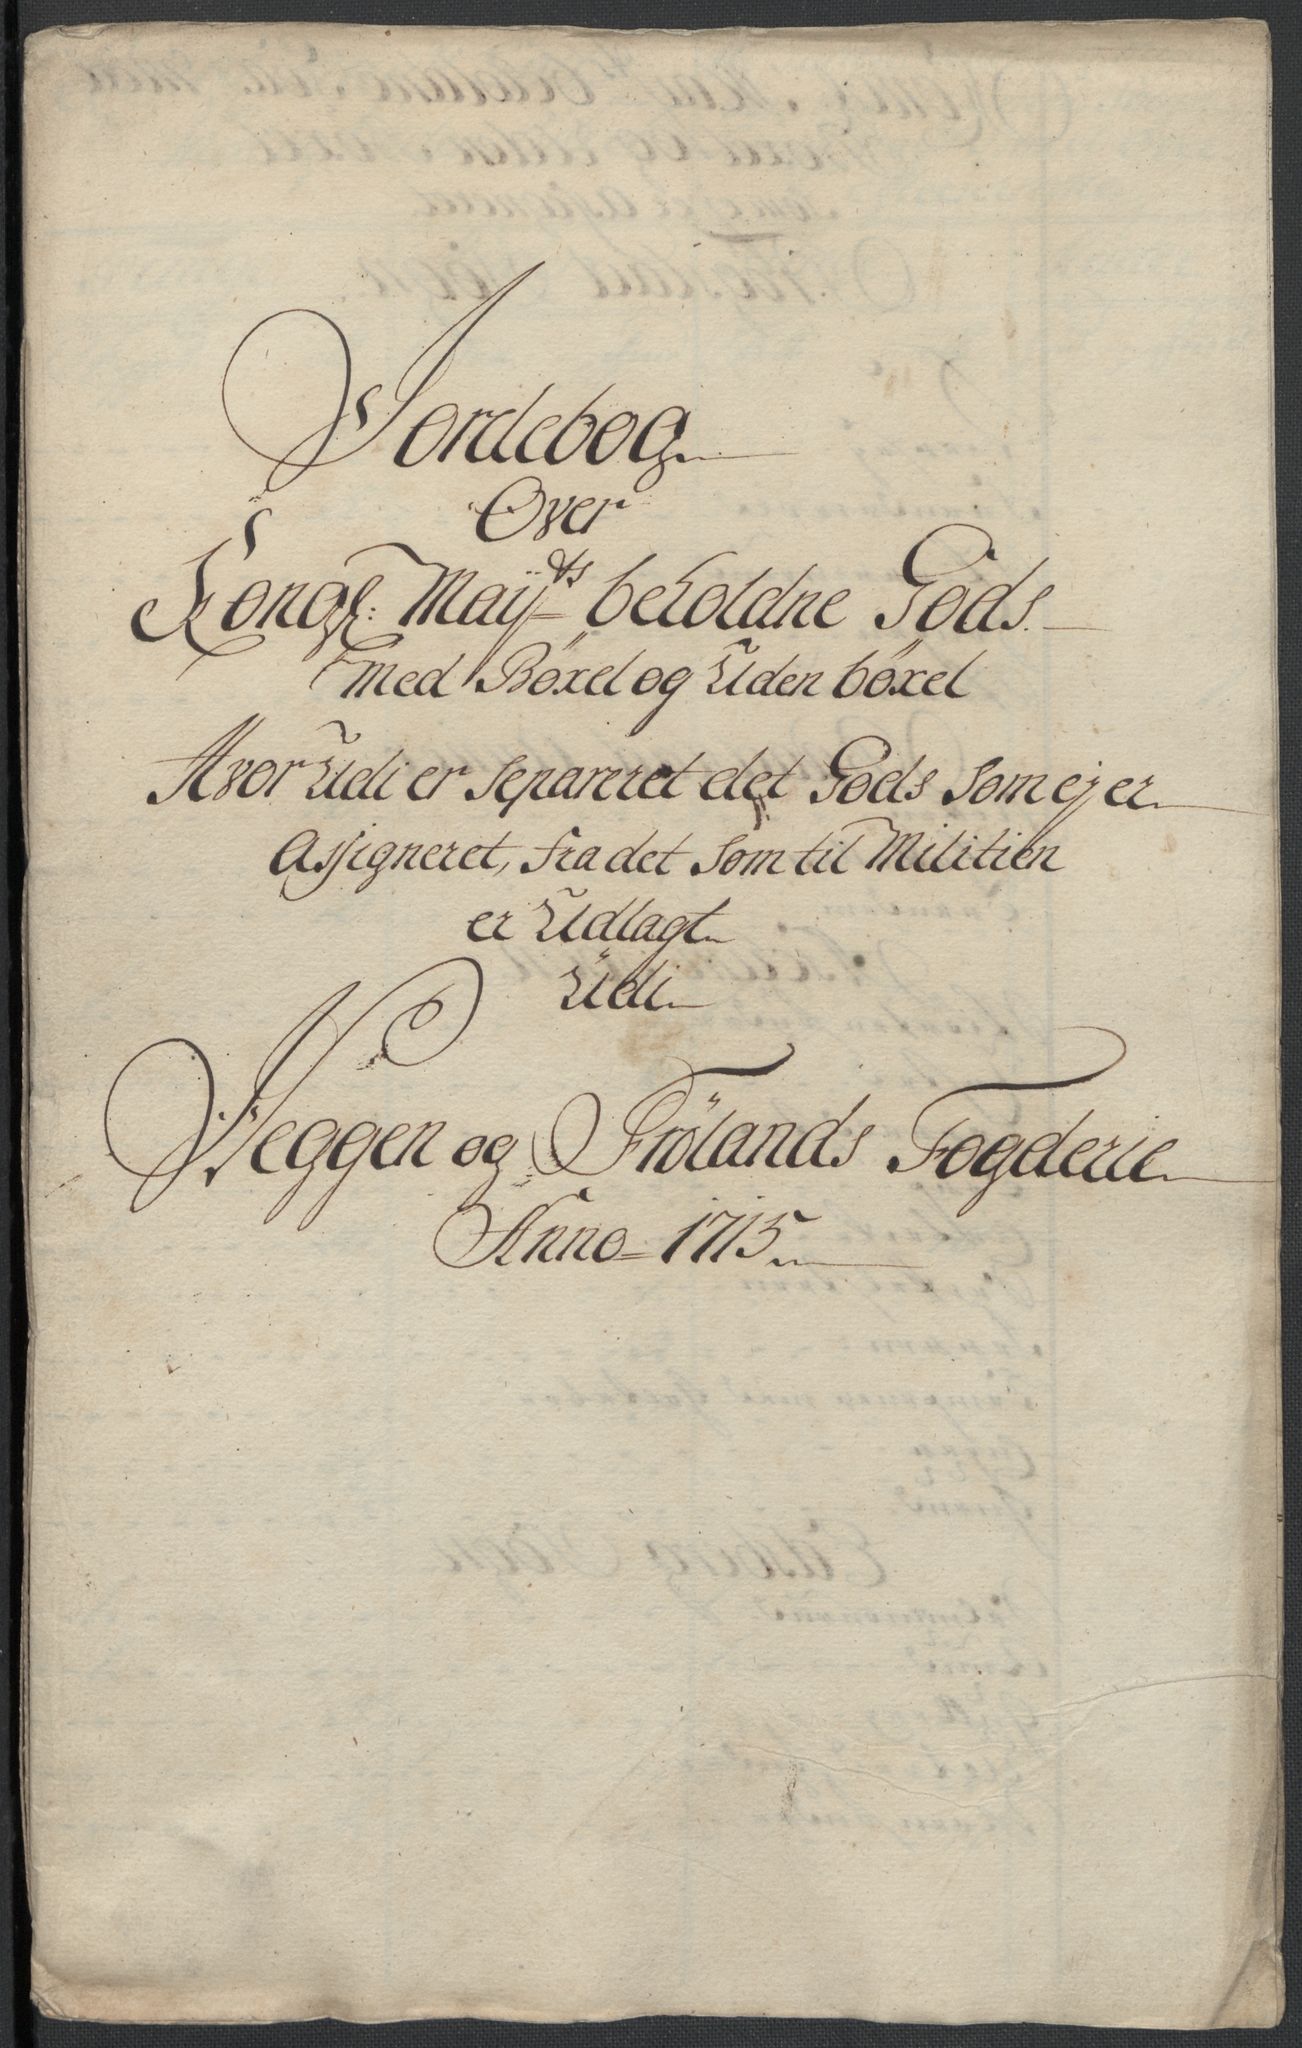 Jordebog
Over
Kongl: Maÿts beholdne Gods
med Böxel og Uden böxel
Hvor Udi er Separeret det Gods Som ej er
Assigneret, fra det Som til Militien
er Udlagt
Udi
Heggen og Frölands Fogderie
Anno 1715